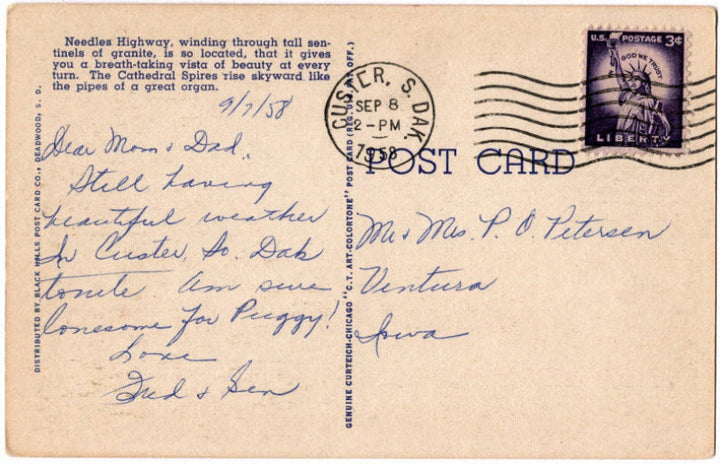 Needles Highway, winding through tall sen-
tinels of granite, is so located, that it gives
you a breath-taking vista of beauty at every
turn. The Cathedral Spires rise skyward like
the pipes of a great organ.
9/7/58
Dear Mom & Dad,
Still having
beautiful weather
In Custer, So. Dak
tonite. Am sure
lonesome for Puggy!
Love
Fred & Gen
DISTRIBUTED BY BLACK HILLS POST CARD CO., DEADWOOD, S. D.
GENUINE CURTEICH-CHICAGO "C.T. ART-COLORTONE" POST CARD (REG. U.S. PAT. OFF.)
CUSTER, S. DAK
SEP 8
2-PM
1958
U.S. POSTAGE 3¢
IN GOD WE TRUST
LIBERTY
POST CARD
Mr & Mrs. P. O. Petersen
Ventura
Iowa